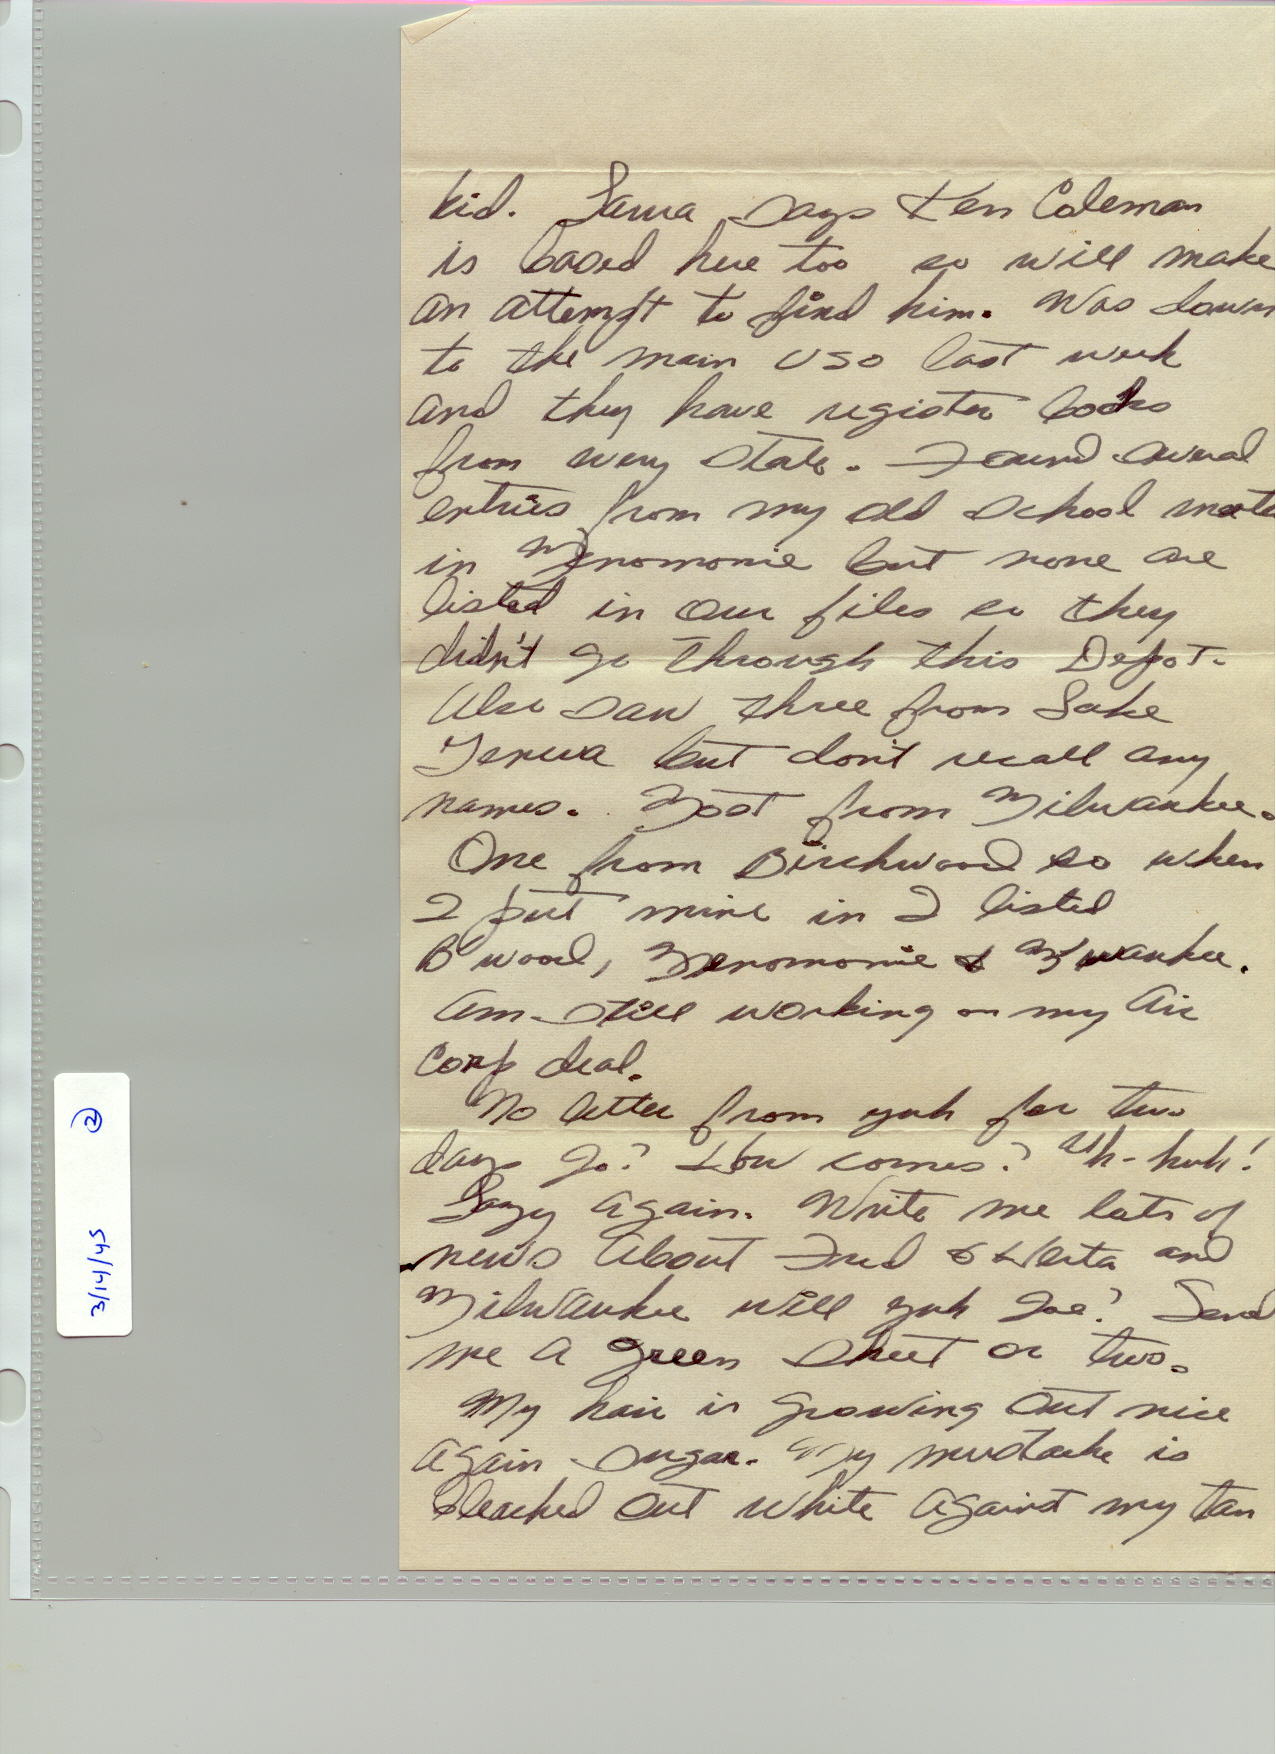 kid. Laura says Ken Coleman
is based here too so will make
an attempt to find him. Was down
to the main USO last week
and they have register books
from every state. Found several
entries from my old school mates
in Menomonie but none are
listed in our files so they
didn't go through this Depot.
Also saw three from Lake
Geneva but don't recall any
names. Most from Milwaukee.
One from Birchwood so when
I put mine in I listed
B'wood, Menomonie & M'waukee.
Am still working on my Air
Corp deal.
No letter from yuh for two
days Jo? How comes? Uh-huh!
Lazy again. Write me lots of
news about Fred & Herta and
Milwaukee will yuh Joe? Send
me a green sheet or two.
My hair is growing out nice
again Sugar. My mustache is
bleached out white against my tan
3/14/45 ②